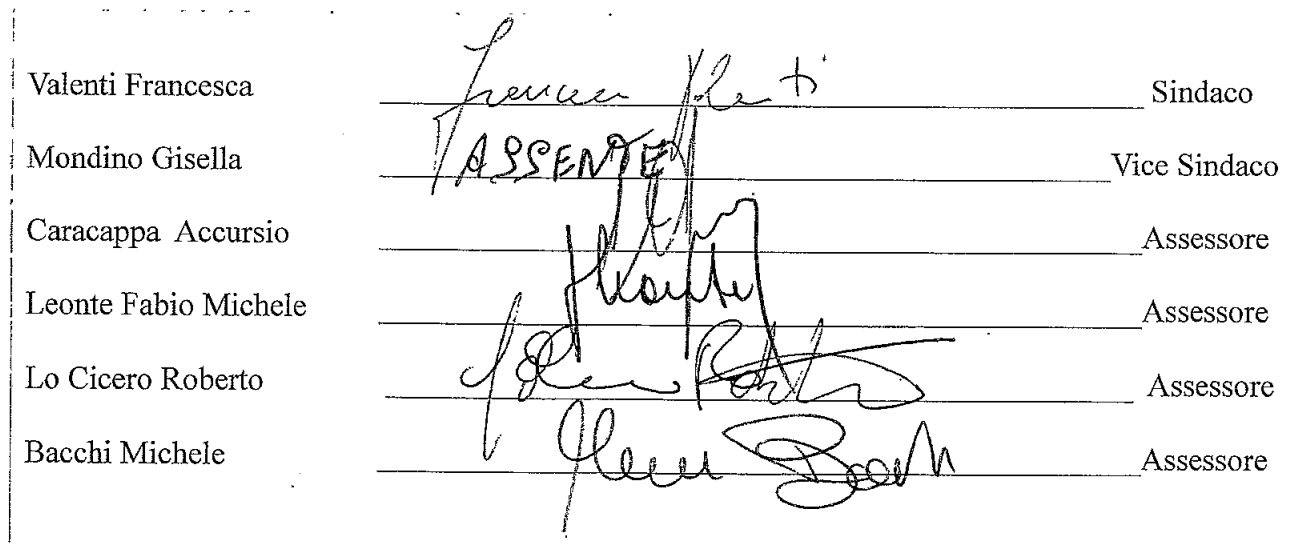 Valenti Francesca Francesca Valenti Sindaco
Mondino Gisella ASSENTE Vice Sindaco
Caracappa Accursio Assessore
Leonte Fabio Michele Assessore
Lo Cicero Roberto Assessore
Bacchi Michele Assessore